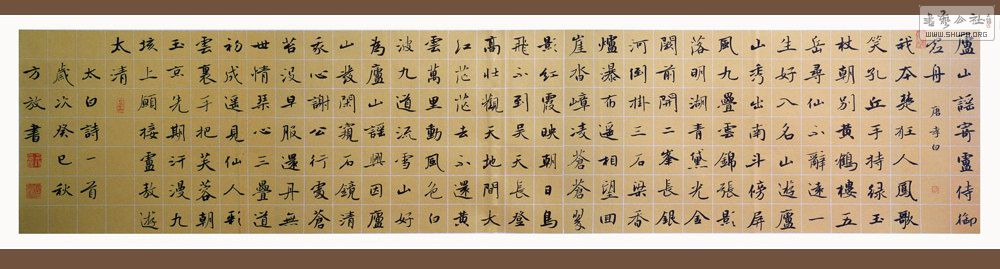 廬山謠寄盧侍御
虛舟 唐 李白
我本楚狂人鳳歌
笑孔丘手持綠玉
杖朝別黃鶴樓五
岳尋仙不辭遠一
生好入名山遊廬
山秀出南斗傍屏
風九疊雲錦張影
落明湖青黛光金
闕前開二峯長銀
河倒掛三石梁香
爐瀑布遥相望回
崖沓嶂凌蒼蒼翠
影紅霞映朝日鳥
飛不到吳天長登
高壯觀天地間大
江茫茫去不還黃
雲萬里動風色白
波九道流雪山好
為廬山謠興因廬
山發閑窺石鏡清
我心謝公行處蒼
苔沒早服還丹無
世情琴心三疊道
初成遥見仙人彩
雲裏手把芙蓉朝
玉京先期汗漫九
垓上願接盧敖遊
太清
太白詩一首
歲次癸巳秋
方放書
书艺公社